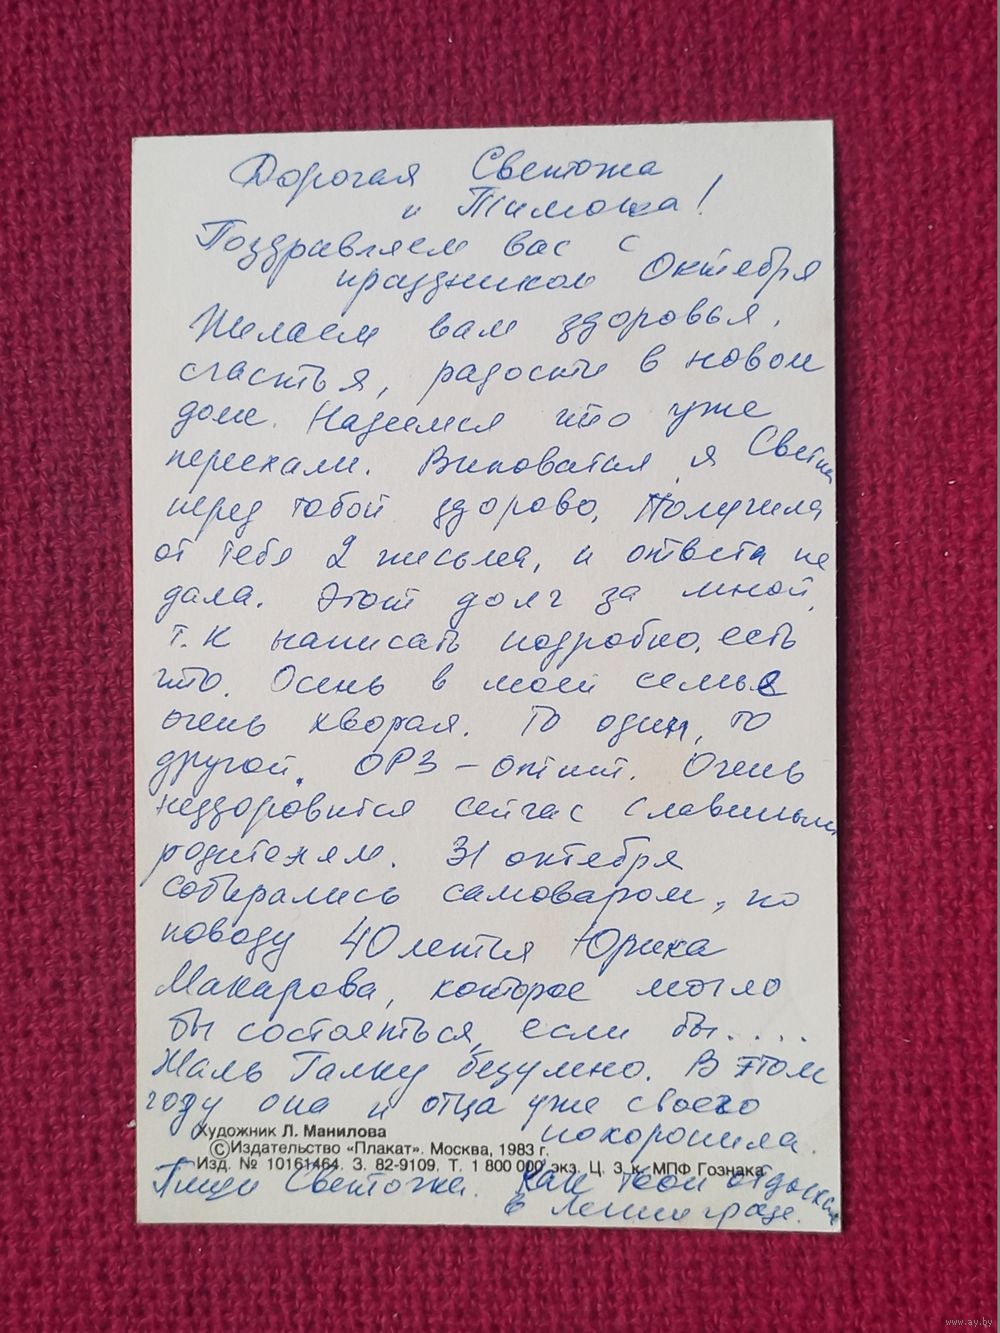 Дорогая Светожа
и Тимоша!
Поздравляем вас с
праздником Октября
Желаем вам здоровья,
счастья, радости в новом
доме. Надеемся что уже
переехали. Виноватая я Светик
перед тобой здорово. Получила
от тебя 2 письма, и ответа не
дала. Этот долг за мной,
т.к написать подробно, есть
что. Осень в моей семье
очень хворая. То один, то
другой. ОРЗ – отит. Очень
нездоровится сейчас Славиным
родителям. 31 октября
собирались самоваром, по
поводу 40летия Юрика
Макарова, которое могло
бы состояться, если бы....
Жаль Галку безумно. В этом
году она и отца уже своего
похоронила.
Художник Л. Манилова
©Издательство «Плакат». Москва, 1983 г.
Изд. № 10161464. З. 82-9109. Т. 1 800 000 экз. Ц. 3 к. МПФ Гознака
Пиши Светочка. Как твои отдыхали
в Ленинграде.
www.ay.by